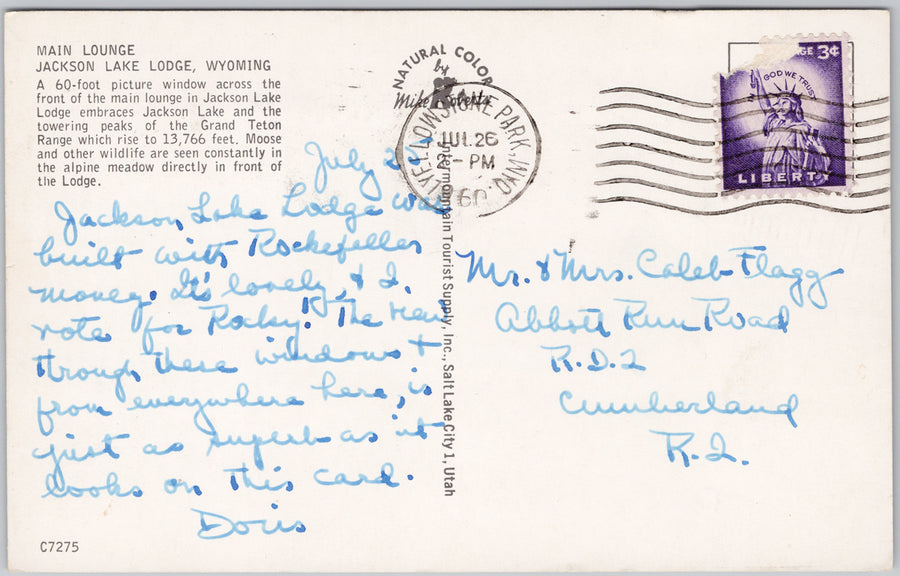 MAIN LOUNGE
JACKSON LAKE LODGE, WYOMING
A 60-foot picture window across the
front of the main lounge in Jackson Lake
Lodge embraces Jackson Lake and the
towering peaks of the Grand Teton
Range which rise to 13,766 feet. Moose
and other wildlife are seen constantly in
the alpine meadow directly in front of
the Lodge.
NATURAL COLOR
by
Mike Roberts
YELLOWSTONE PARK, WYO.
JUL 26
PM
1960
3¢
IN GOD WE TRUST
LIBERTY
July
Jackson Lake Lodge was
built with Rockefeller
money. It's lovely, & I
vote for Rocky! The view
through these windows +
from everywhere here, is
just as superb as it
looks on this card.
Doris
Intermountain Tourist Supply, Inc., Salt Lake City 1, Utah
Mr. & Mrs. Caleb Flagg
Abbott Run Road
R.D.2
Cumberland
R.I.
C7275